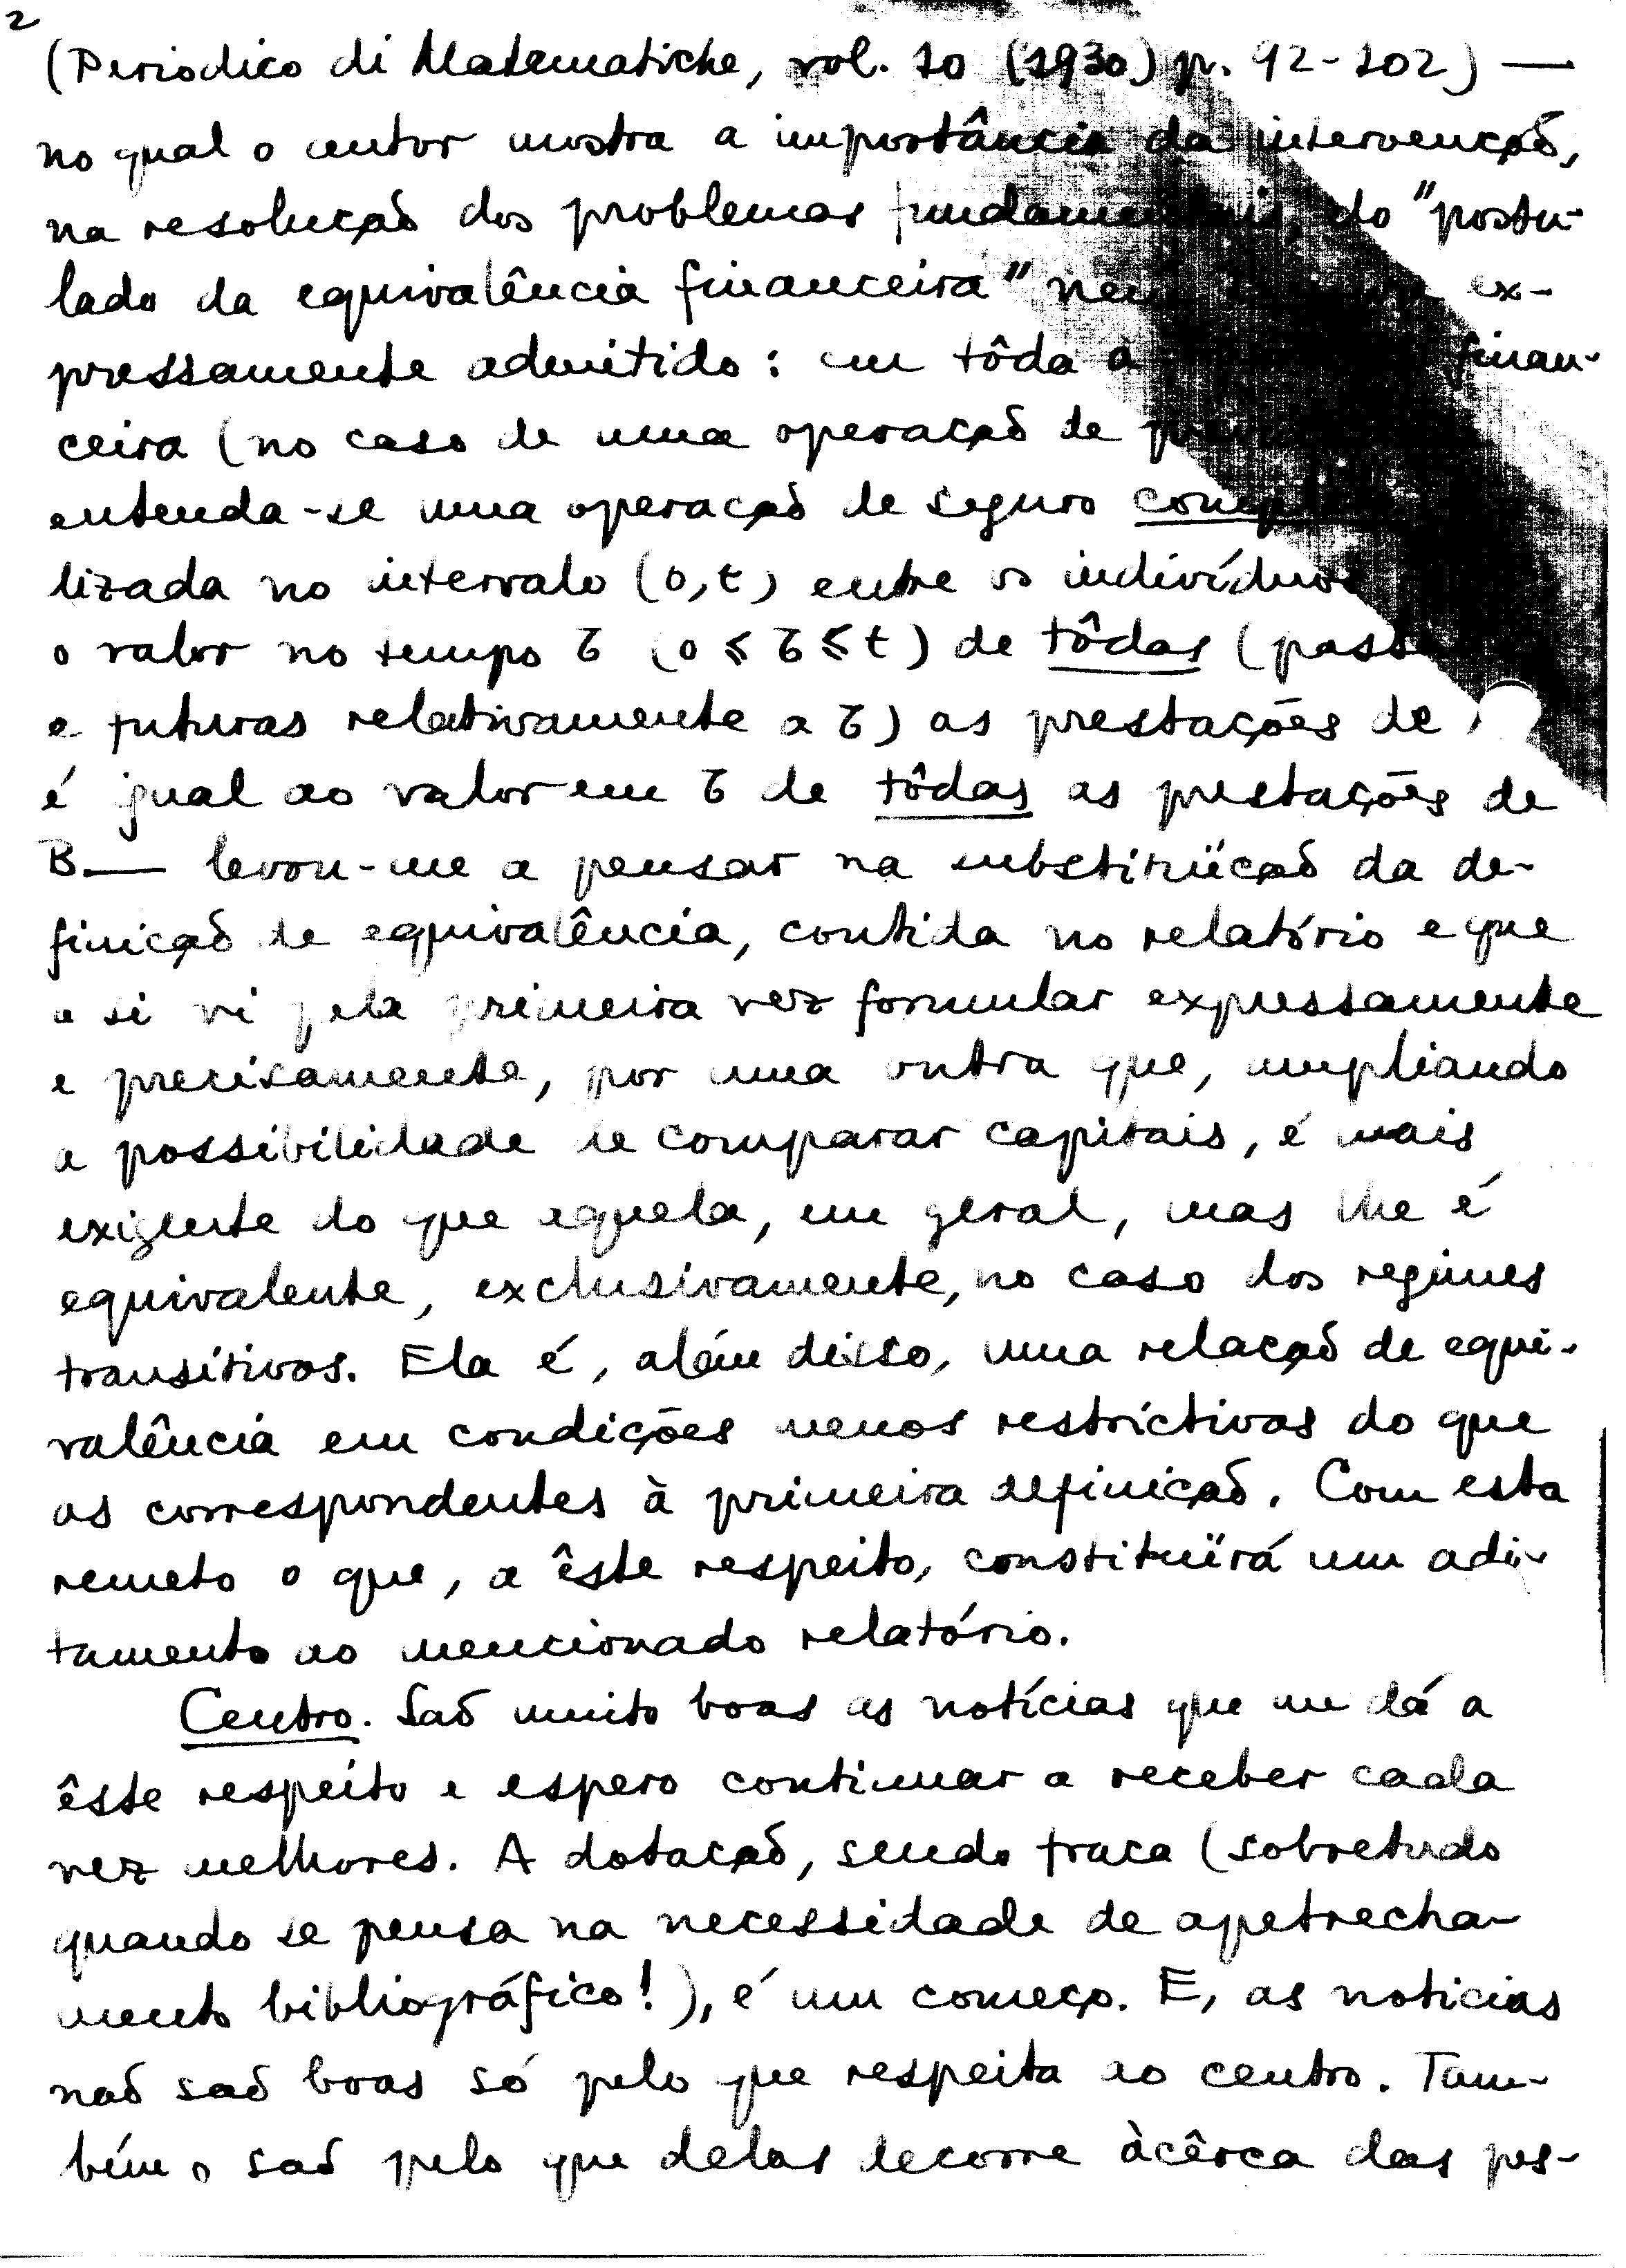 2
(Periodico di Matematiche, vol. 10 (1930) p. 92-102) —
no qual o autor mostra a importância da intervenção,
na resolução dos problemas fundamentais, do "postu-
lado da equivalência financeira" nem ex-
pressamente admitido: em tôda a finan-
ceira (no caso de uma operação de
entenda-se uma operação de seguro
lizada no intervalo (0, t) entre os indivíduos
o valor no tempo τ (0 ≤ τ ≤ t) de tôdas
e futuras relativamente a τ) as prestações de
é igual ao valor em τ de tôdas as prestações de
B — levou-me a pensar na substituïção da de-
finição de equivalência, contida no relatório e que
a si vi pela primeira vez formular expressamente
e precisamente, por uma outra que, ampliando
a possibilidade de comparar capitais, é mais
exigente do que aquela, em geral, mas lhe é
equivalente, exclusivamente, no caso dos regimes
transitivos. Ela é, além disso, uma relação de equi-
valência em condições menos restrictivas do que
as correspondentes à primeira definição. Com esta
remeto o que, a êste respeito, constituïrá um adi-
tamento ao mencionado relatório.
Centro. São muito boas as notícias que me dá a
êste respeito e espero continuar a receber cada
vez melhores. A dotação, sendo fraca (sobretudo
quando se pensa na necessidade de apetrecha-
mento bibliográfico!), é um começo. E, as noticias
não são boas só pelo que respeita ao centro. Tam-
bém o são pelo que delas decorre àcêrca das pes-